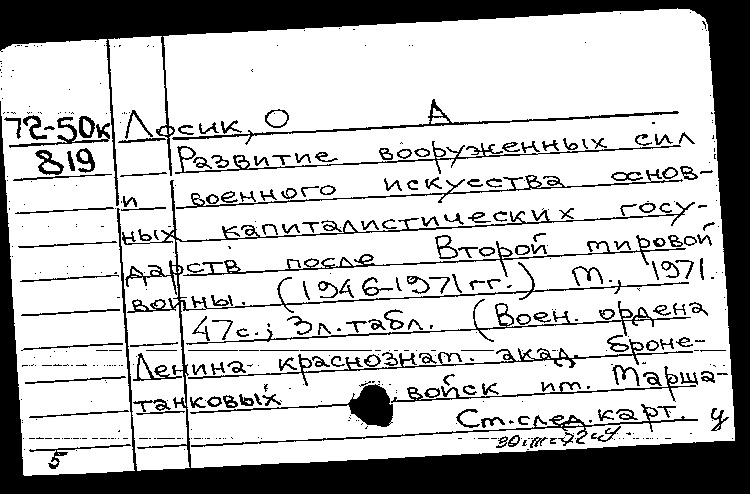 72-50к Лосик, О А
819 Развитие вооруженных сил
и военного искусства основ-
ных капиталистических госу-
дарств после Второй мировой
войны. (1946-1971 гг.) М., 1971.
47с.; 3л.табл. (Воен. ордена
Ленина краснознам. акад. броне-
танковых войск им. Марша-
Ст.след.карт. у
5